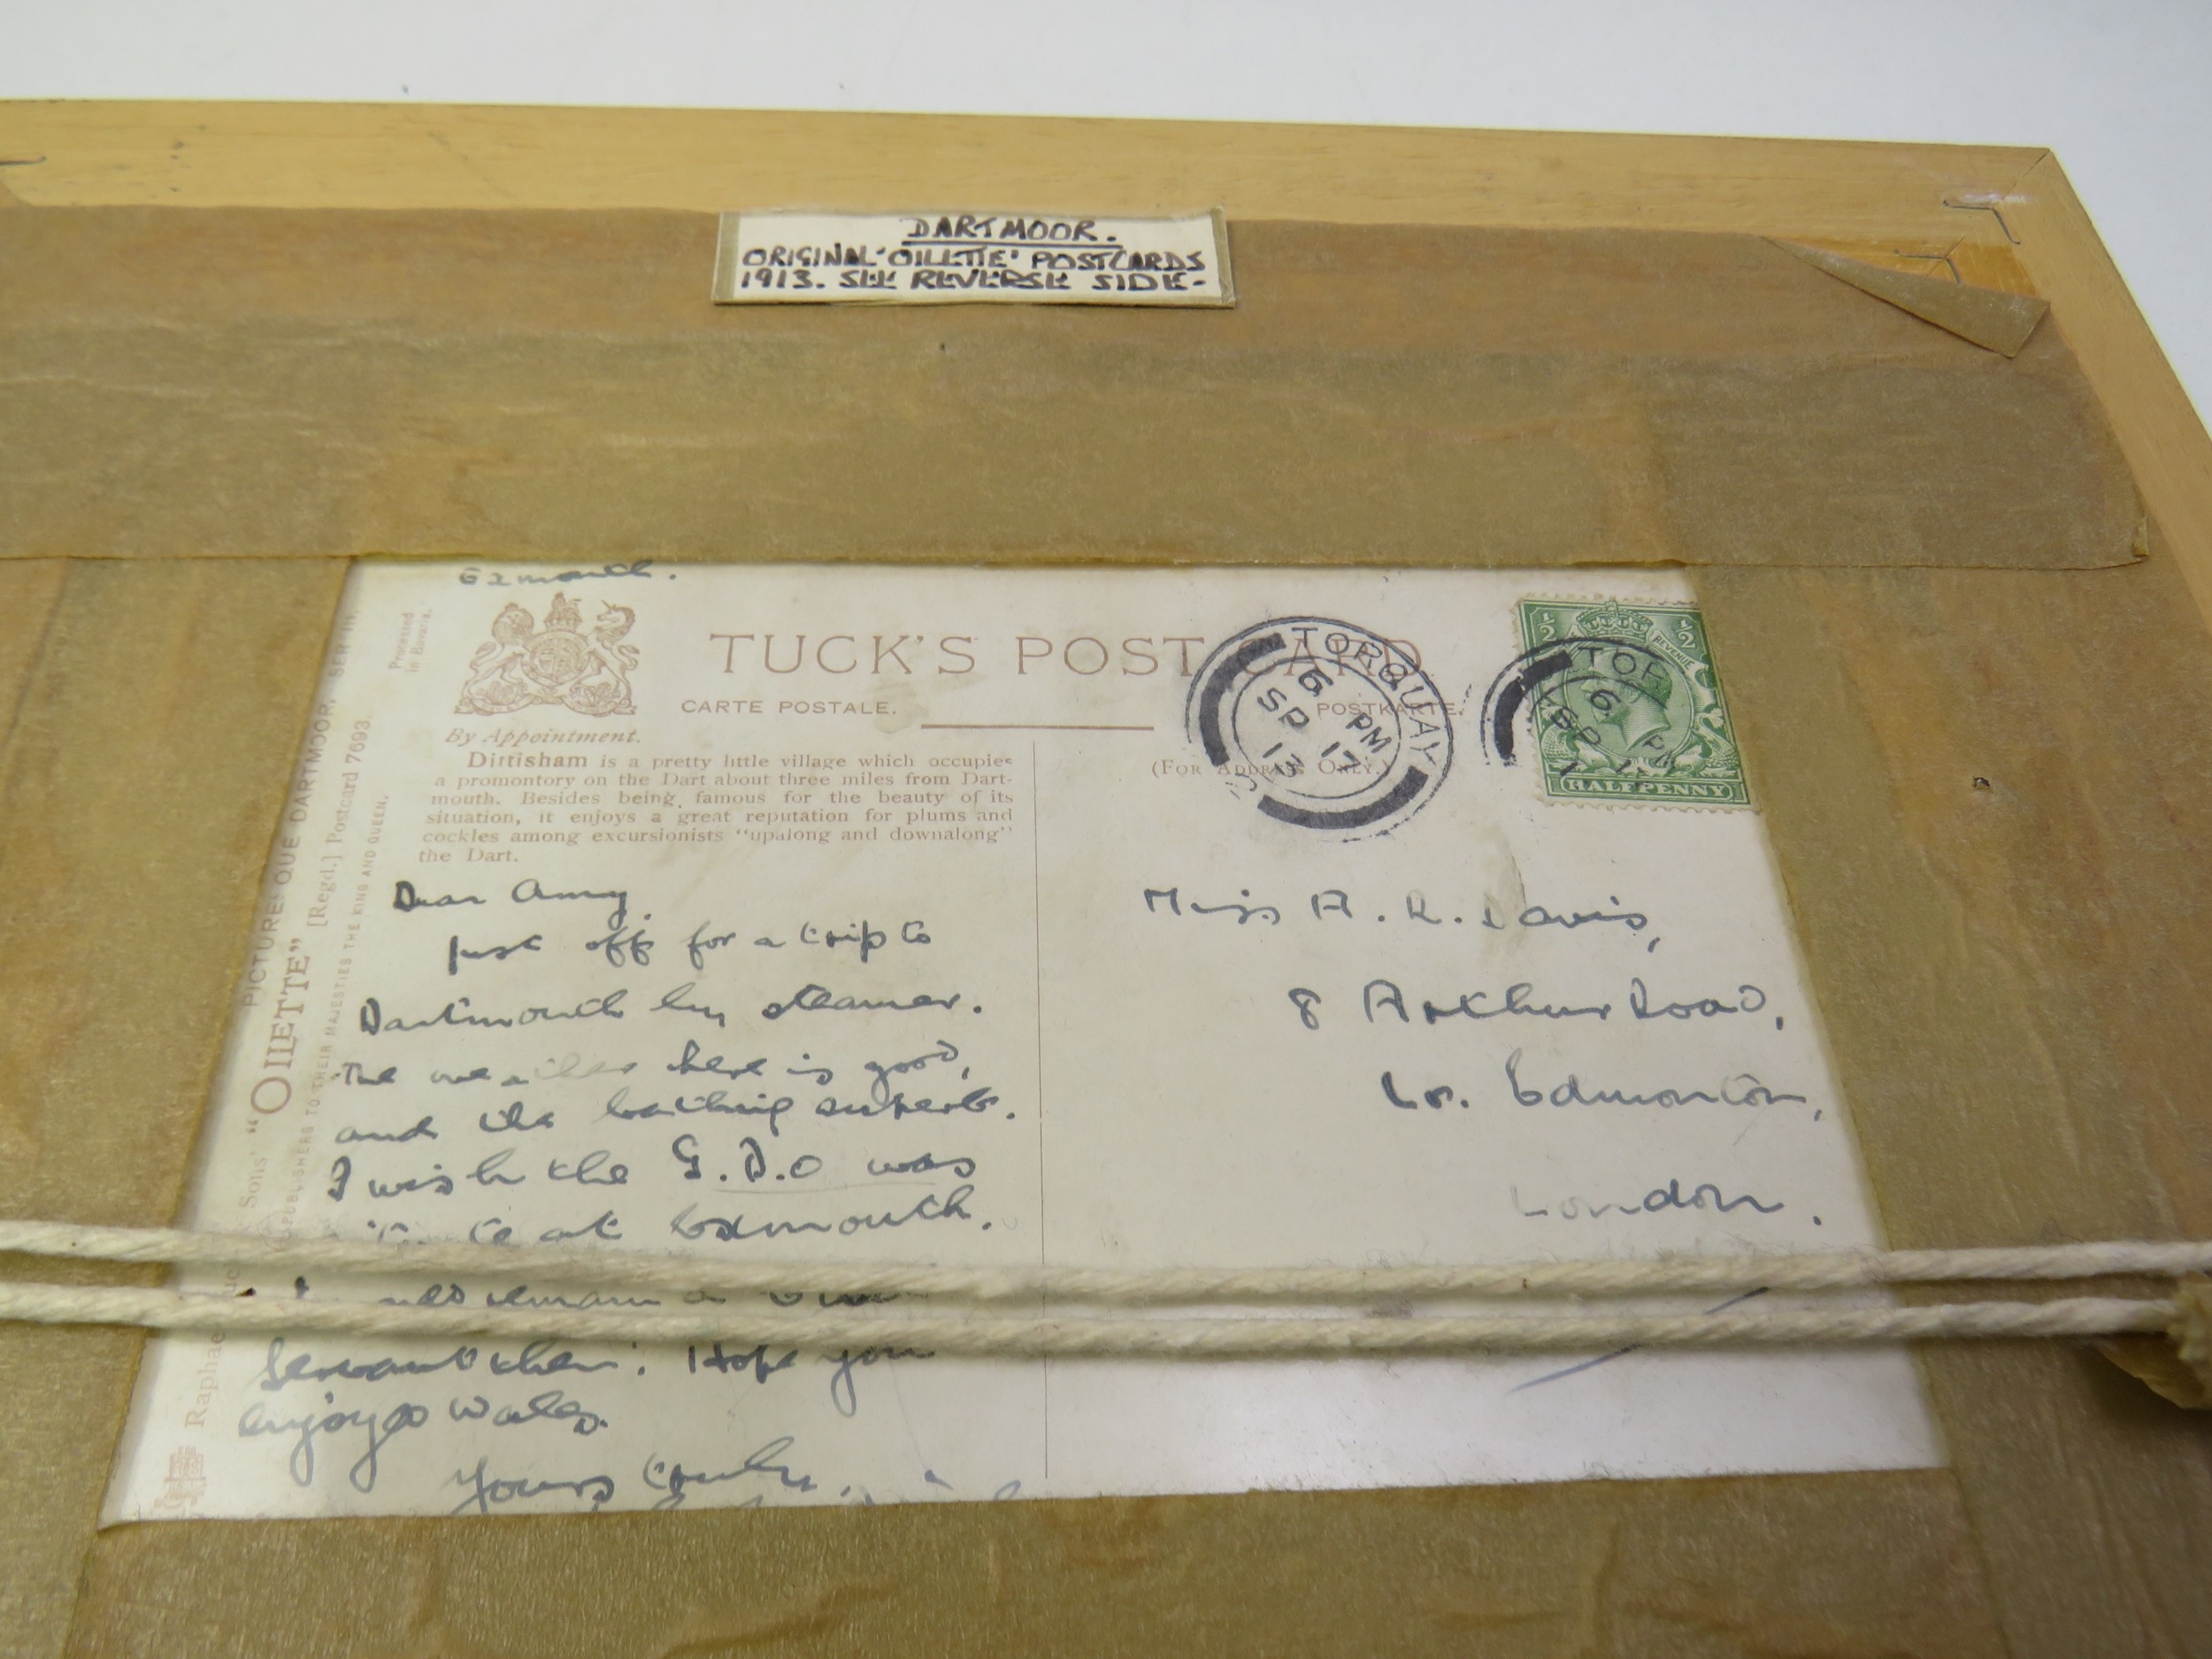 DARTMOOR.
ORIGINAL 'OILETTE' POSTCARDS
1913. SEE REVERSE SIDE.
Exmouth.
TUCK'S POST CARD
CARTE POSTALE.
POSTKARTE.
By Appointment.
(FOR ADDRESS ONLY.)
Dittisham is a pretty little village which occupies
a promontory on the Dart about three miles from Dart-
mouth. Besides being famous for the beauty of its
situation, it enjoys a great reputation for plums and
cockles among excursionists "upalong and downalong"
the Dart.
Processed
in Bavaria.
PICTURESQUE DARTMOOR. SER III
Sons' "OILETTE" [Regd.] Postcard 7693.
PUBLISHERS TO THEIR MAJESTIES THE KING AND QUEEN.
Raphael
TORQUAY
6 PM
SP 17
13
TOR
6 PM
SP 1
1
½ ½
REVENUE
HALFPENNY
Dear Amy,
Just off for a trip to
Dartmouth by steamer.
The weather here is good,
and the bathing superb.
I wish the G.P.O was
at Exmouth.
remain a
Servant then. Hope you
enjoyed Wales.
Yours truly,
Miss A. R. Davis,
8 Arthur Road,
Lr. Edmonton,
London.